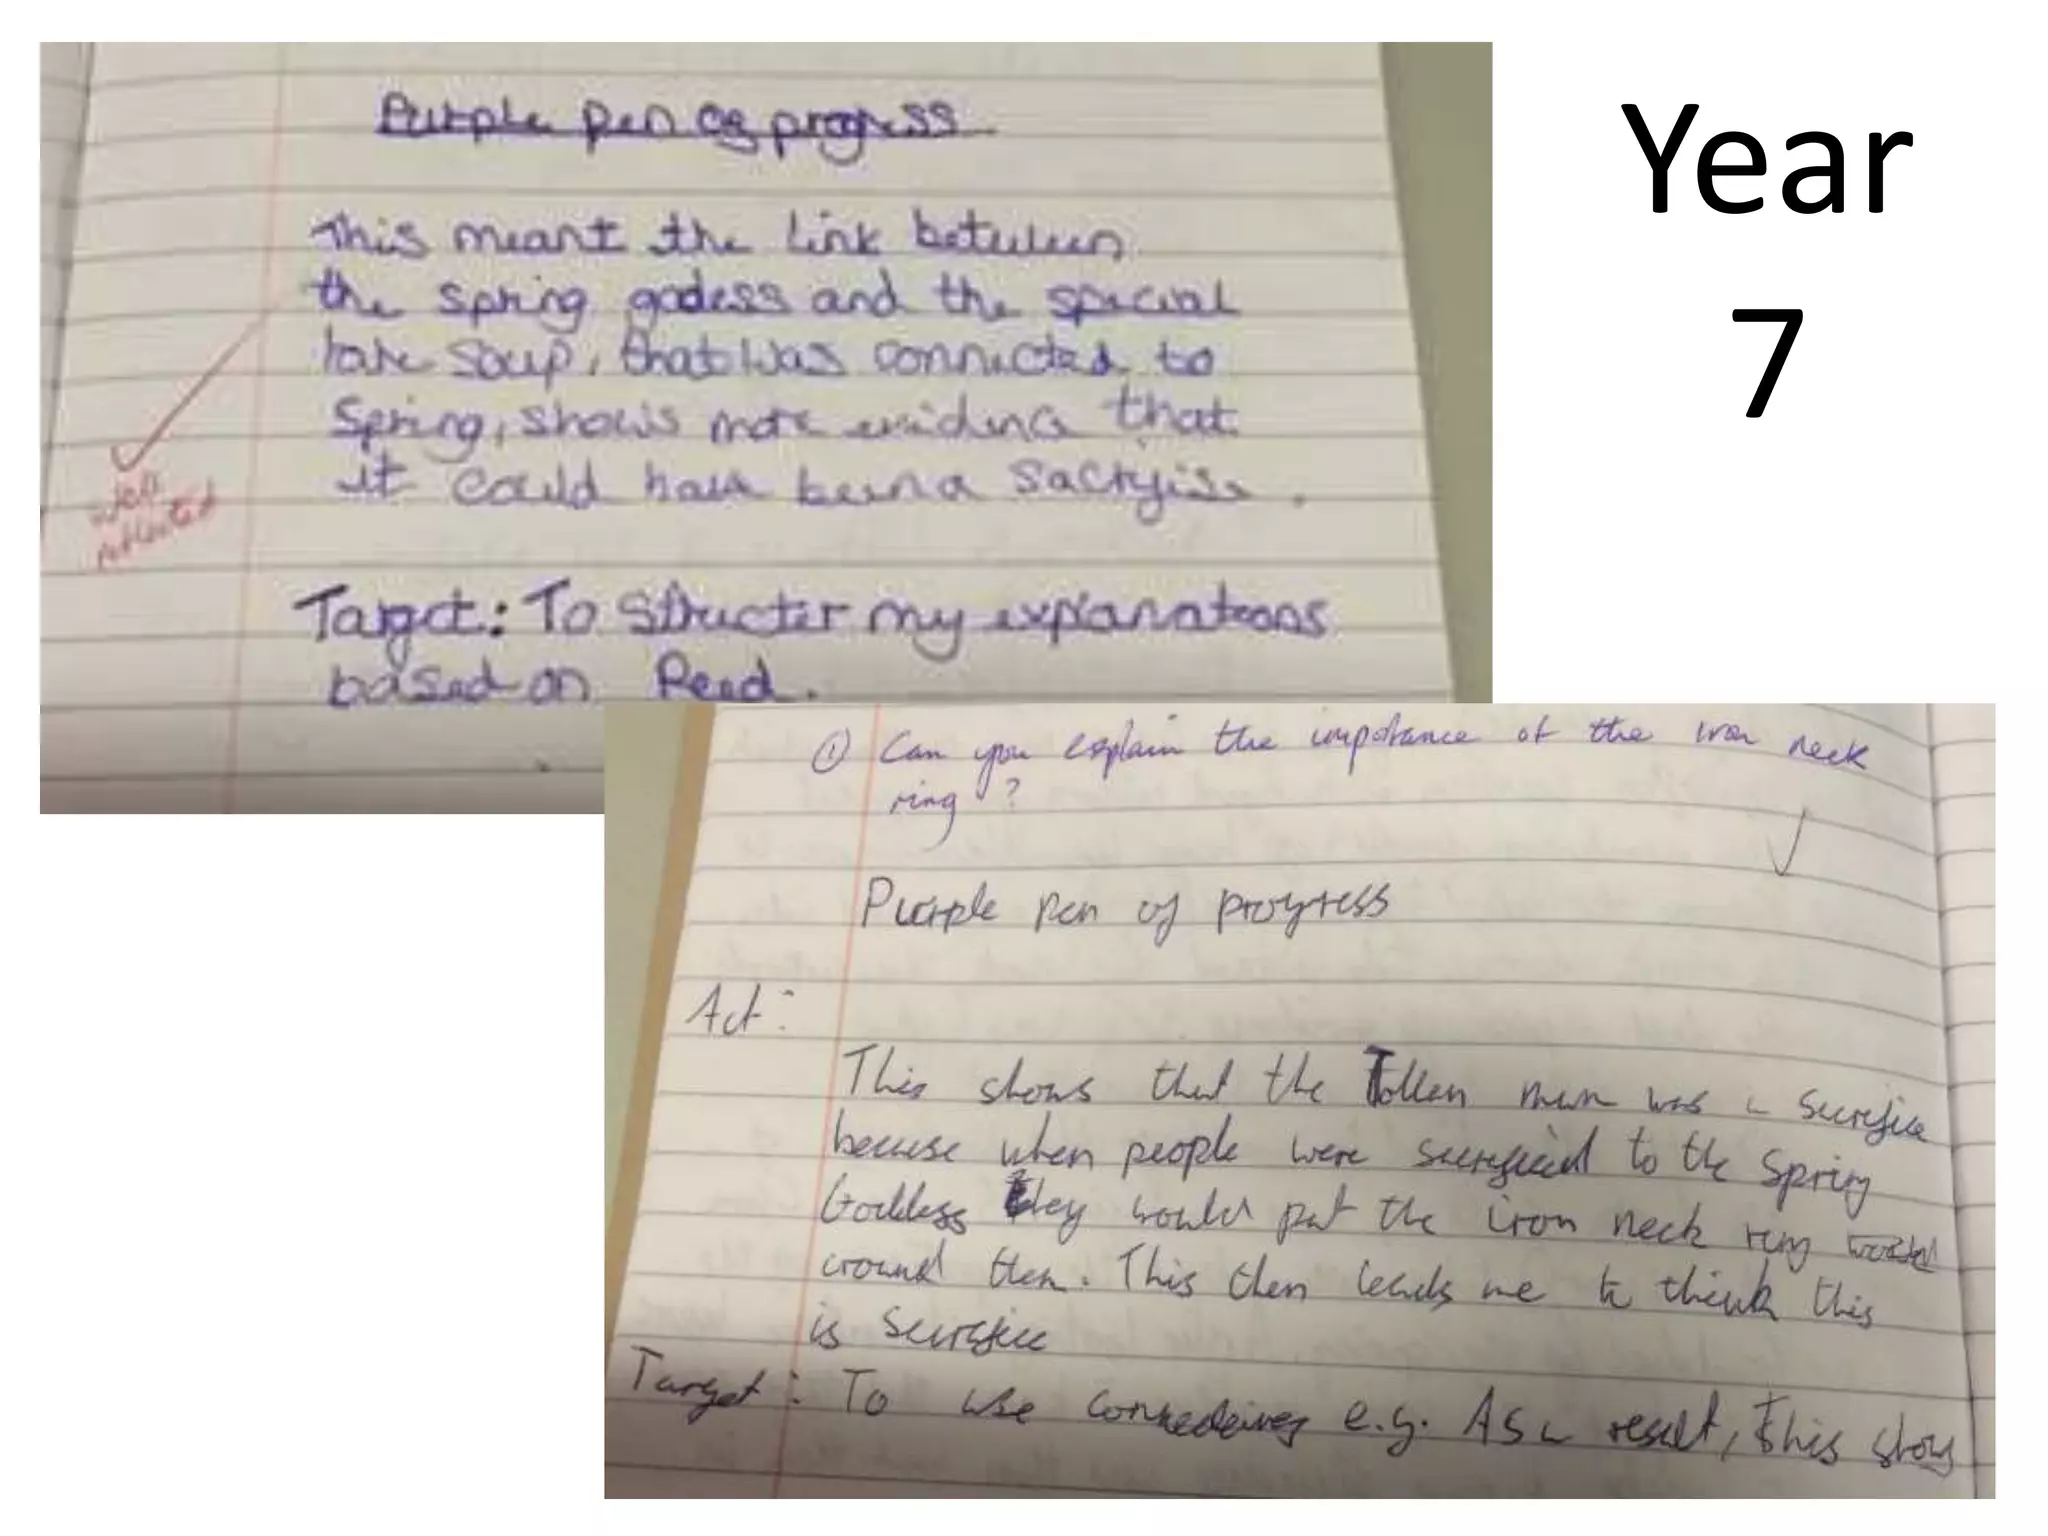 Year
7
Purple pen of progress
This meant the link between
the spring godess and the special
rare soup, that was connected to
Spring, shows more evidence that
it could have been a sacryfise.
well
reflected
Target: To Structer my explanations
based on Peed.
① Can you explain the impotance of the iron neck
ring?
Purple pen of progress
Act:
This shows that the Tollen man was a Sacrefice
because when people were sacreficied to the Spring
Goddess they would put the iron neck ring
around them. This then leads me to think this
is Sacrefice
Target: To use connectives e.g. As a result, this shows